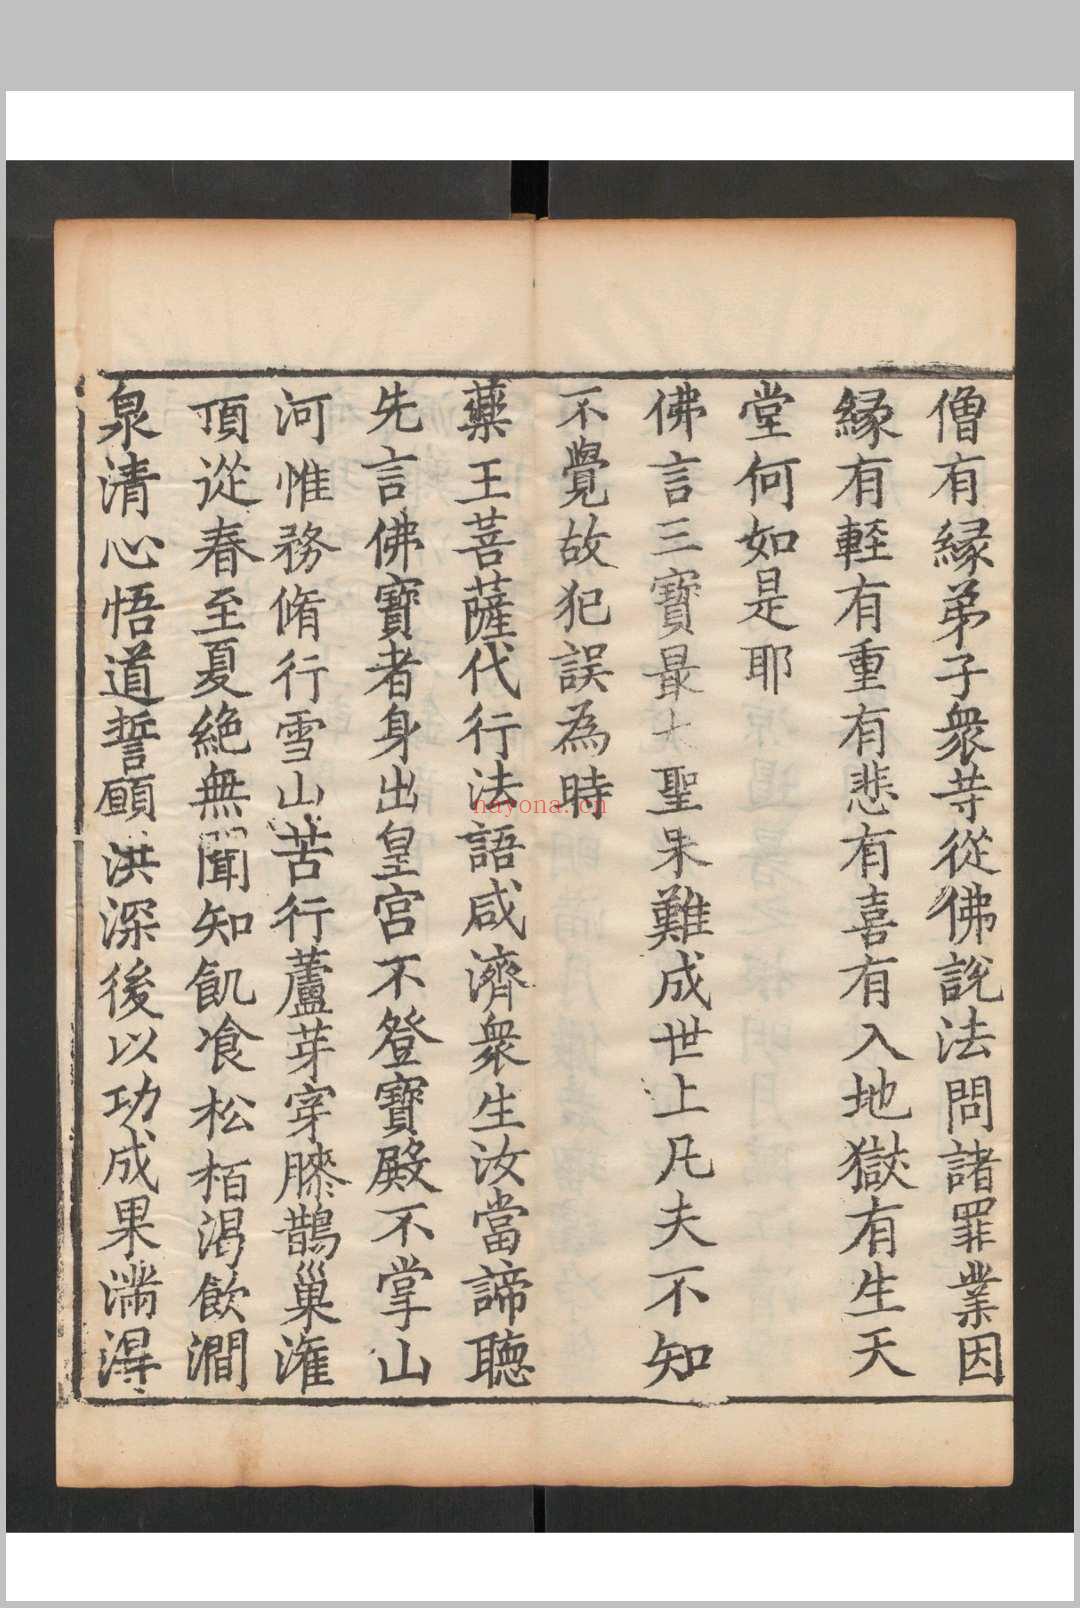 僧有縁弟子衆䒭從佛說法問諸罪業因
縁有輕有重有悲有喜有入地獄有生天
堂何如是耶
佛言三寶最大聖果難成世上凡夫不知
不覺故犯誤為時
藥王菩薩代行法語咸濟衆生汝當諦聽
先言佛寶者身出皇宮不登寶殿不掌山
河惟務脩行雪山苦行蘆芽穿膝鵲巢灌
頂從春至夏絶無聞知飢飡松栢渴飲澗
泉清心悟道誓願洪深後以功成果滿得
nayona.cn